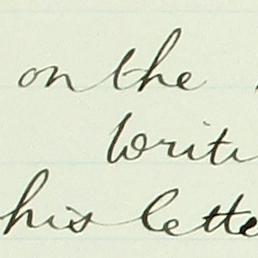 on the
writi
his lette